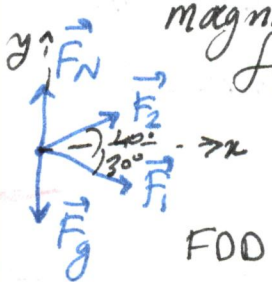 magn
y
F_N
F_2
40°
30°
x
F_1
F_g
FDD